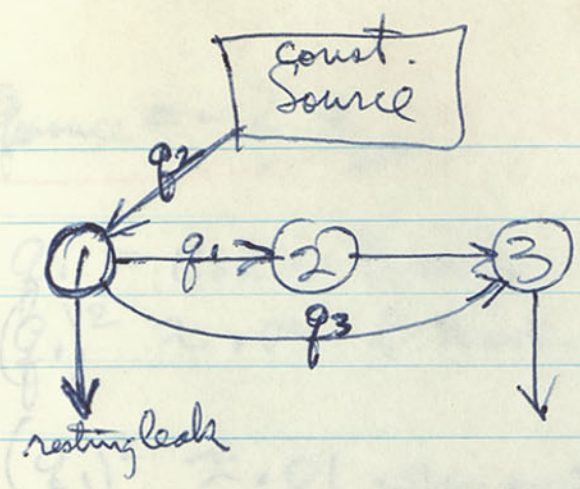 const.
Source
q2
1
q1
2
3
q3
resting leak